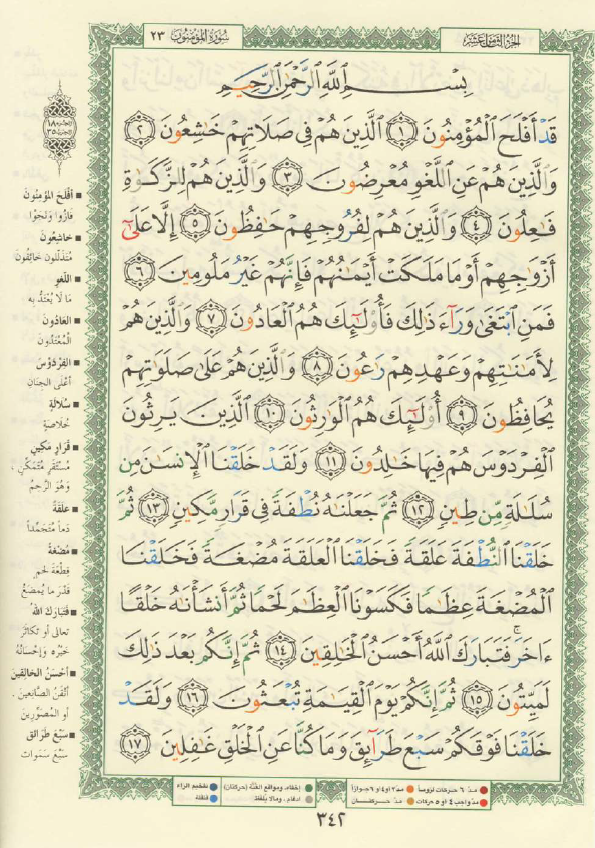 سُورَةُ المُؤْمِنُون ٢٣
الجُزْءُ الثَّامِنَ عَشَرَ
بِسْمِ اللَّهِ الرَّحْمَٰنِ الرَّحِيمِ
قَدْ أَفْلَحَ الْمُؤْمِنُونَ ١ الَّذِينَ هُمْ فِي صَلَاتِهِمْ خَٰشِعُونَ ٢
وَالَّذِينَ هُمْ عَنِ اللَّغْوِ مُعْرِضُونَ ٣ وَالَّذِينَ هُمْ لِلزَّكَوٰةِ
فَٰعِلُونَ ٤ وَالَّذِينَ هُمْ لِفُرُوجِهِمْ حَٰفِظُونَ ٥ إِلَّا عَلَىٰٓ
أَزْوَٰجِهِمْ أَوْ مَا مَلَكَتْ أَيْمَٰنُهُمْ فَإِنَّهُمْ غَيْرُ مَلُومِينَ ٦
فَمَنِ ابْتَغَىٰ وَرَآءَ ذَٰلِكَ فَأُو۟لَٰٓئِكَ هُمُ الْعَادُونَ ٧ وَالَّذِينَ هُمْ
لِأَمَٰنَٰتِهِمْ وَعَهْدِهِمْ رَٰعُونَ ٨ وَالَّذِينَ هُمْ عَلَىٰ صَلَوَٰتِهِمْ
يُحَافِظُونَ ٩ أُو۟لَٰٓئِكَ هُمُ الْوَٰرِثُونَ ١٠ الَّذِينَ يَرِثُونَ
الْفِرْدَوْسَ هُمْ فِيهَا خَٰلِدُونَ ١١ وَلَقَدْ خَلَقْنَا الْإِنسَٰنَ مِن
سُلَٰلَةٍ مِّن طِينٍ ١٢ ثُمَّ جَعَلْنَٰهُ نُطْفَةً فِي قَرَارٍ مَّكِينٍ ١٣ ثُمَّ
خَلَقْنَا النُّطْفَةَ عَلَقَةً فَخَلَقْنَا الْعَلَقَةَ مُضْغَةً فَخَلَقْنَا
الْمُضْغَةَ عِظَٰمًا فَكَسَوْنَا الْعِظَٰمَ لَحْمًا ثُمَّ أَنشَأْنَٰهُ خَلْقًا
ءَاخَرَ ۚ فَتَبَارَكَ اللَّهُ أَحْسَنُ الْخَٰلِقِينَ ١٤ ثُمَّ إِنَّكُم بَعْدَ ذَٰلِكَ
لَمَيِّتُونَ ١٥ ثُمَّ إِنَّكُمْ يَوْمَ الْقِيَٰمَةِ تُبْعَثُونَ ١٦ وَلَقَدْ
خَلَقْنَا فَوْقَكُمْ سَبْعَ طَرَآئِقَ وَمَا كُنَّا عَنِ الْخَلْقِ غَٰفِلِينَ ١٧
الجزء ١٨
الحزب ٣٥
■ أَفْلَحَ المُؤْمِنُونَ
فَازُوا وَنَجَوْا
■ خَاشِعُونَ
مُتَذَلِّلُون خَائِفُونَ
■ اللَّغْوِ
مَا لَا يُعْتَدُّ بِهِ
■ العَادُونَ
المُعْتَدُونَ
■ الفِرْدَوْسَ
أَعْلَى الجِنَانِ
■ سُلَالَةٍ
خُلَاصَةٍ
■ قَرَارٍ مَكِينٍ
مُسْتَقَرٍّ مُتَمَكِّنٍ ،
وَهُوَ الرَّحِمُ
■ عَلَقَةً
دَماً مُتَجَمِّداً
■ مُضْغَةً
قِطْعَةَ لَحْمٍ
قَدْرَ ما يُمضَغُ
■ فَتَبَارَكَ اللهُ
تعالى أو تكاثرَ
خَيْرُه وَإِحْسَانُهُ
■ أَحْسَنُ الخَالِقِينَ
أَتْقَنُ الصَّانِعِينَ .
أو المُصَوِّرِينَ
■ سَبْعَ طَرَائِقَ
سَبْعَ سَمَوَاتٍ
مدّ ٦ حركات لزوماً
مدّ ٢ أو ٤ أو ٦ جوازاً
إخفاء، ومواقع الغُنَّة (حركتان)
تفخيم الراء
مدّ واجب ٤ أو ٥ حركات
مدّ حركتان
ادغام ، وما لا يُلفَظ
قلقلة
٣٤٢